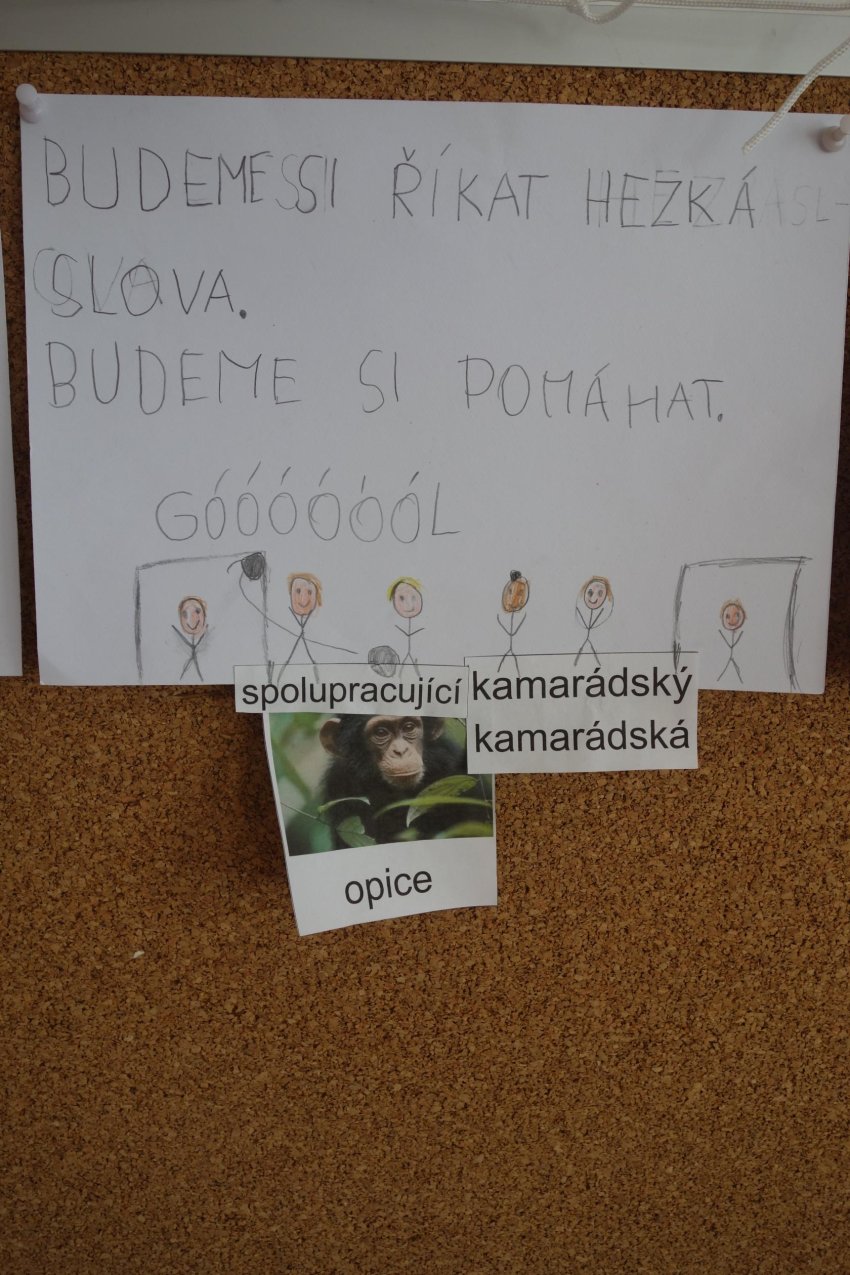 BUDEME SI ŘÍKAT HEZKÁ
SLOVA.
BUDEME SI POMÁHAT.
GÓÓÓÓÓÓL
spolupracující
kamarádský
kamarádská
opice